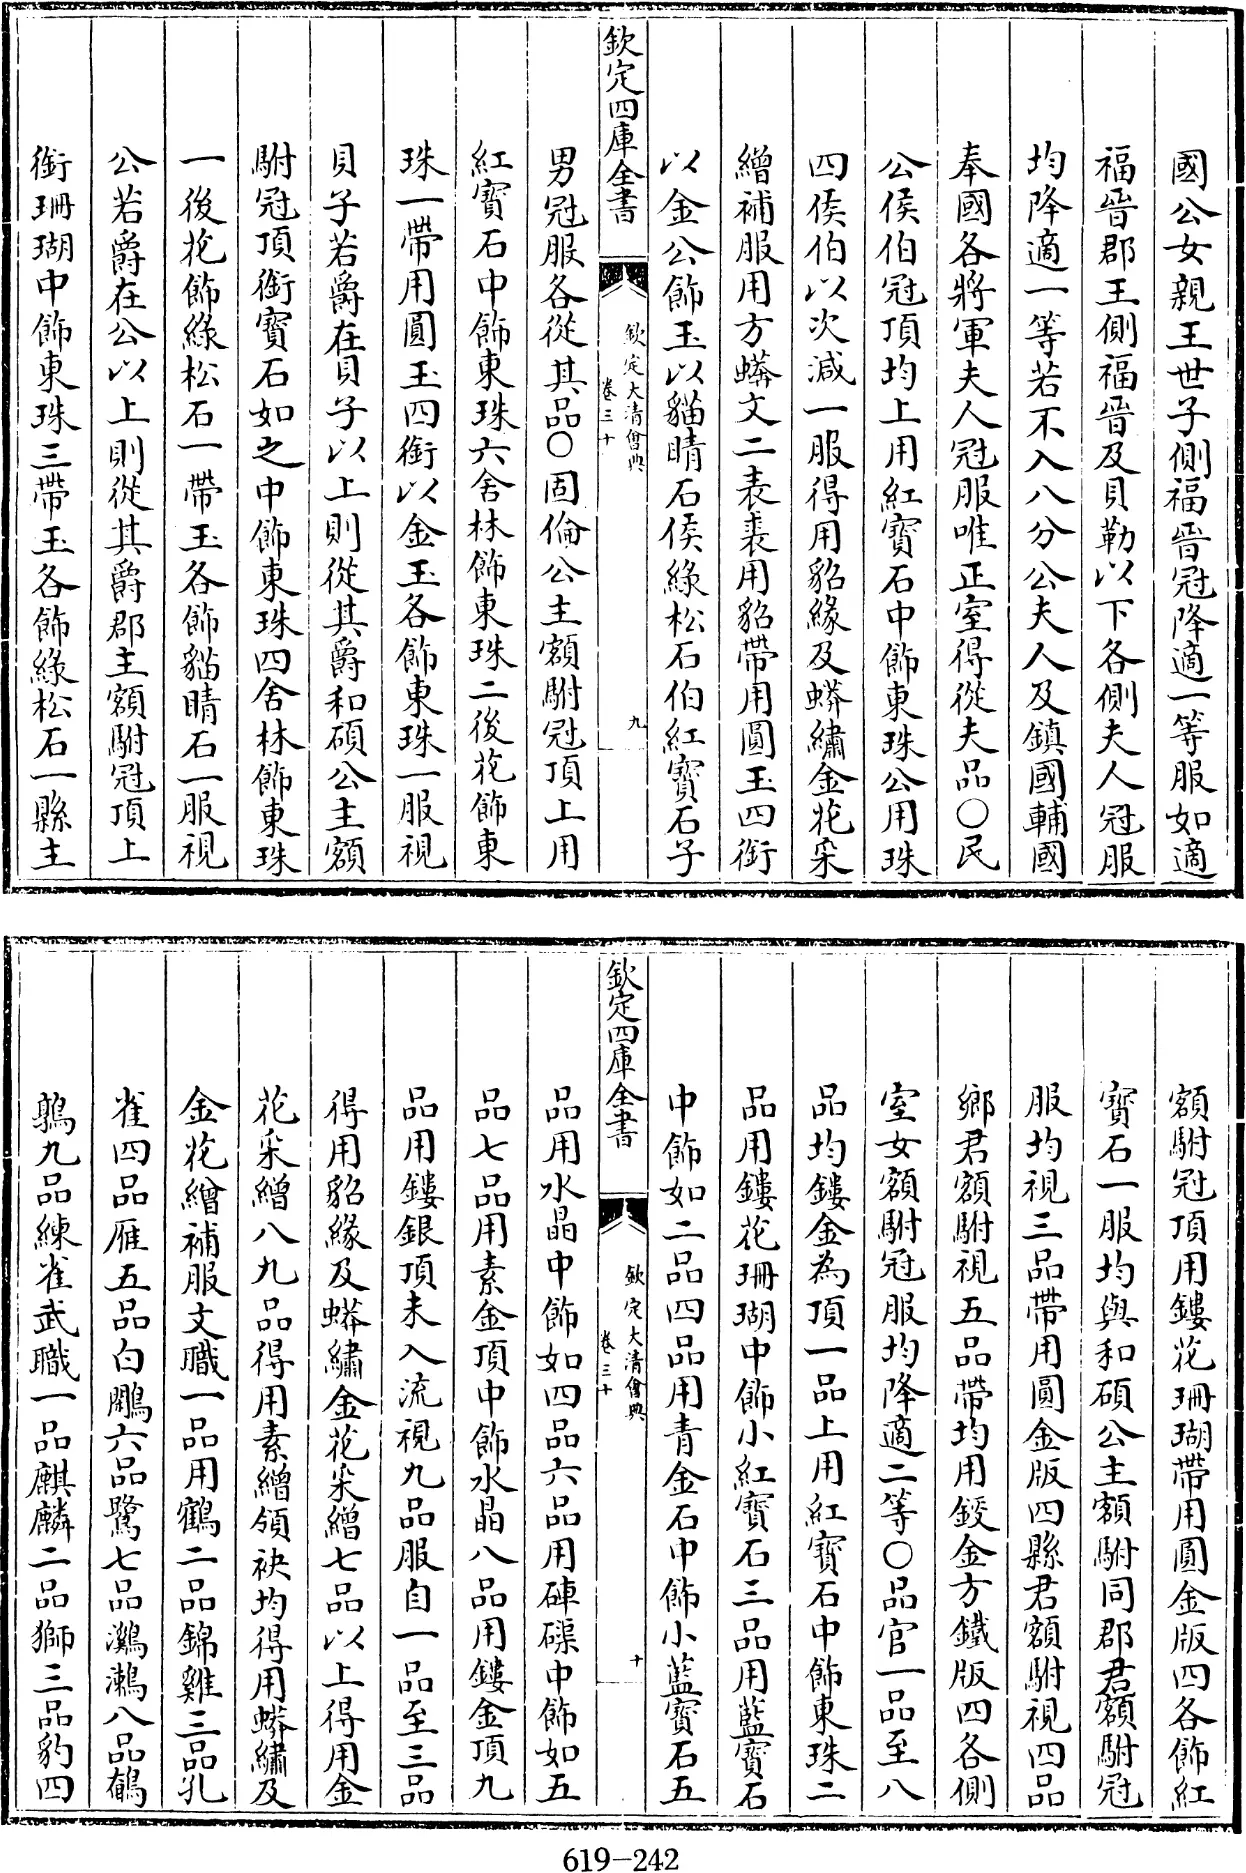 國公女親王世子側福晉冠降適一等服如適
福晉郡王側福晉及貝勒以下各側夫人冠服
均降適一等若不入八分公夫人及鎮國輔國
奉國各將軍夫人冠服唯正室得從夫品〇民
公侯伯冠頂均上用紅寶石中飾東珠公用珠
四侯伯以次減一服得用貂緣及蟒繡金花采
繒補服用方蟒文二表裘用貂帶用圓玉四銜
以金公飾玉以貓睛石侯綠松石伯紅寶石子
欽定四庫全書
欽定大清會典
卷三十
九
男冠服各從其品〇固倫公主額駙冠頂上用
紅寶石中飾東珠六舍林飾東珠二後花飾東
珠一帶用圓玉四銜以金玉各飾東珠一服視
貝子若爵在貝子以上則從其爵和碩公主額
駙冠頂銜寶石如之中飾東珠四舍林飾東珠
一後花飾綠松石一帶玉各飾貓睛石一服視
公若爵在公以上則從其爵郡主額駙冠頂上
銜珊瑚中飾東珠三帶玉各飾綠松石一縣主
額駙冠頂用鏤花珊瑚帶用圓金版四各飾紅
寶石一服均與和碩公主額駙同郡君額駙冠
服均視三品帶用圓金版四縣君額駙視四品
鄉君額駙視五品帶均用鋄金方鐵版四各側
室女額駙冠服均降適二等〇品官一品至八
品均鏤金為頂一品上用紅寶石中飾東珠二
品用鏤花珊瑚中飾小紅寶石三品用藍寶石
中飾如二品四品用青金石中飾小藍寶石五
欽定四庫全書
欽定大清會典
卷三十
十
品用水晶中飾如四品六品用硨磲中飾如五
品七品用素金頂中飾水晶八品用鏤金頂九
品用鏤銀頂未入流視九品服自一品至三品
得用貂緣及蟒繡金花采繒七品以上得用金
花采繒八九品得用素繒領袂均得用蟒繡及
金花繒補服文職一品用鶴二品錦雞三品孔
雀四品雁五品白鷴六品鷺七品鸂鶒八品鵪
鶉九品練雀武職一品麒麟二品獅三品豹四
619-242